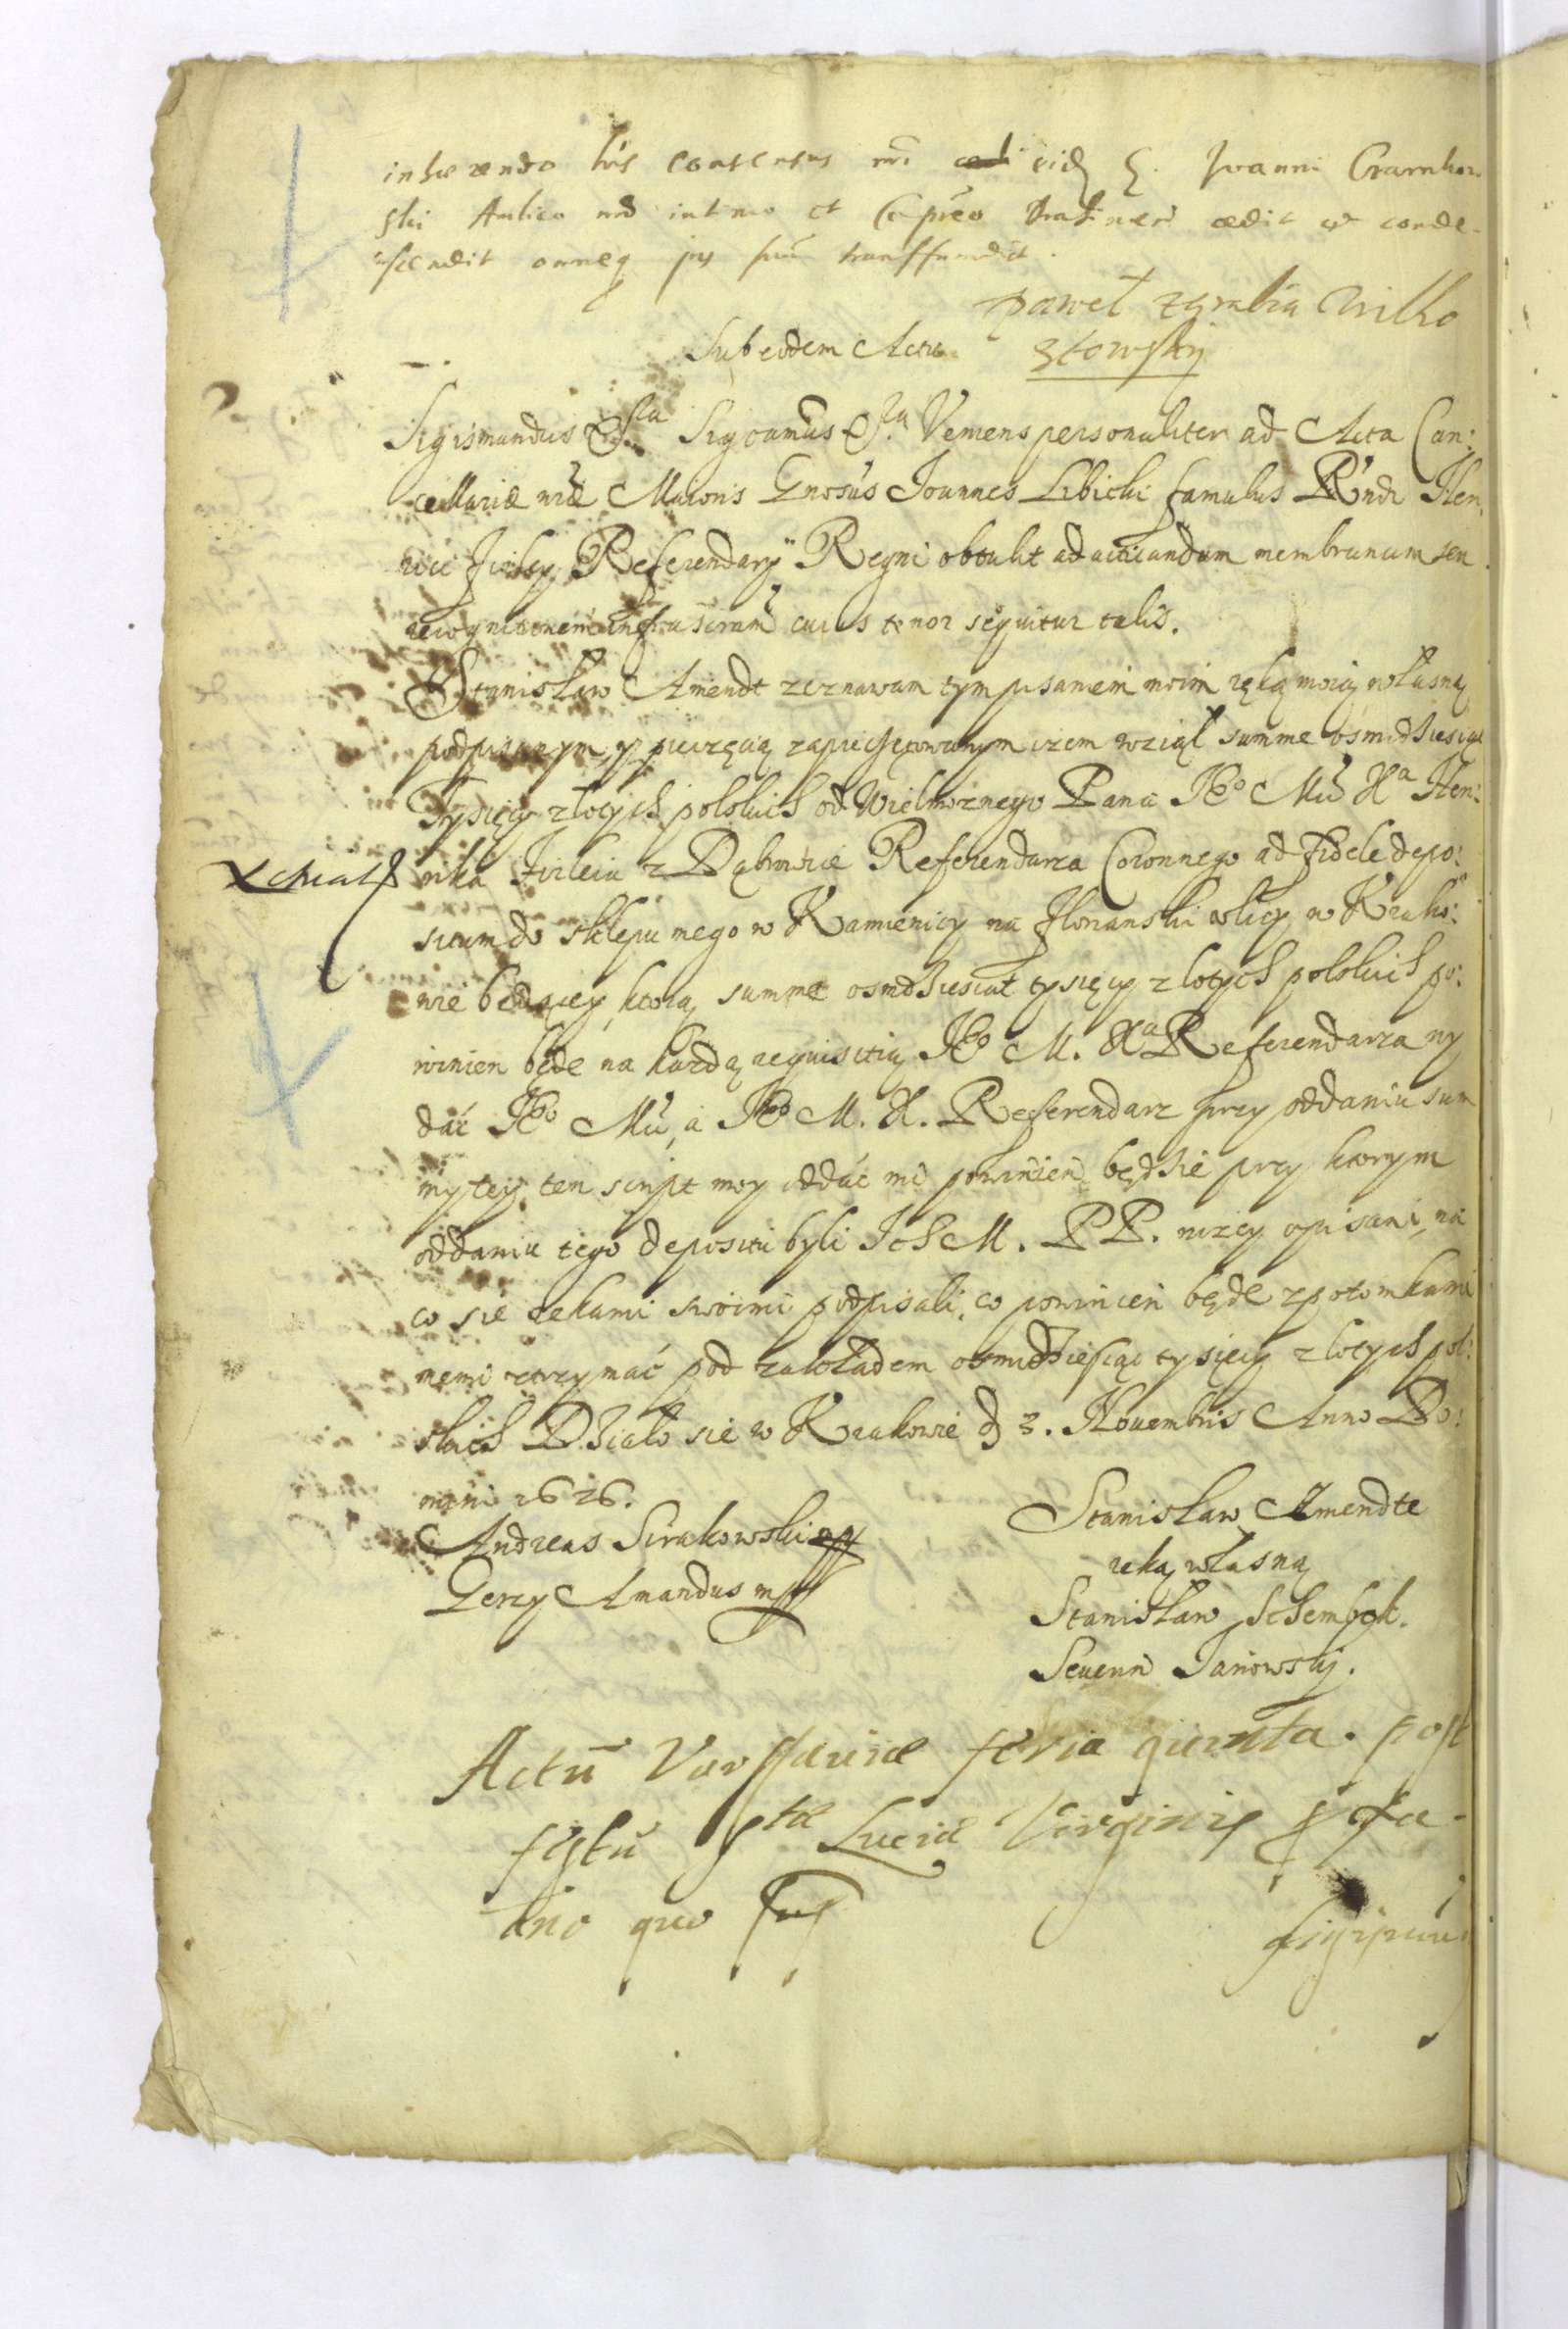 inhærendo hs consensus nri eid G. Joanni Czarnkow
ski Aulico nro intimo et Capneo cædit et conde-
scendit omneq jus suu transffundit.
paweł zęmbia Wilko
złowskij
Sub eodem Actu
Sigismundus &c Sigcamus &c. Veniens personaliter ad Acta Can:
cellariæ nræ Maioris Gnosus Joannes Libicki famulus Rndi Hen
rici Firlej Referendarÿ Regni obtulit ad acticandum membranam seu
recognitionem infrascram cuius tenor sequitur talis.
Stanisław Amendt zeznawam tym pisaniem moim ręką moią własną
podpisanym, y pieczęcią zapieczętowanym izem wziął summe osmdziesiąt
Tysięcy złotych polskich od Wielmoznego Pana Jeo Mci Xa Hen:
rika Firleia z Dąbrowice Referendarza Coronnego ad fidele depo:
situm do sklepu mego w Kamienicy na Florianski ulicy w Krako:
wie będącey, ktorą summe osmdziesiat tysięcy złotych polskich po:
winien będe na kazdą requisitią Jeo M. Xa Referendarza wy
dać Jeo Mci, a Jeo M. X. Referendarz przy oddaniu sum
my tey, ten script moy oddać mi powinien będzie przy ktorym
oddaniu tego depositu byli Ich M. PP. nizey opisani, na
co sie rekami swoimi podpisali, co powinien będe z potomkami
memi ztrzymać pod zakładem osmidziesiąt tysięcy złotych pol:
skich Działo sie w Krakowie d 3. Nouembris Anno Do:
mini 1626.
Stanisław Amendte
Andreas Sirakowski mpp
reką własną
Gerzy Amandus mpp
Stanisław Schembek.
Seuerin Janowskij.
Actu Varssauiæ feria quinta post
festu Stæ Luciæ Virginis
Ano quo sus